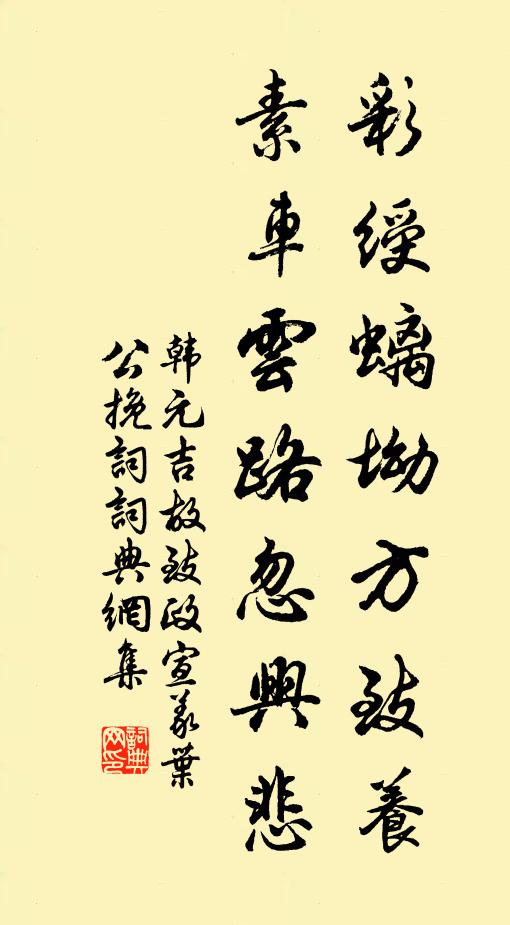 彩綬螭坳方致養
素車雲路忽興悲
韩元吉故致政宣義葉
公挽詞詞典網集
詞典
网印